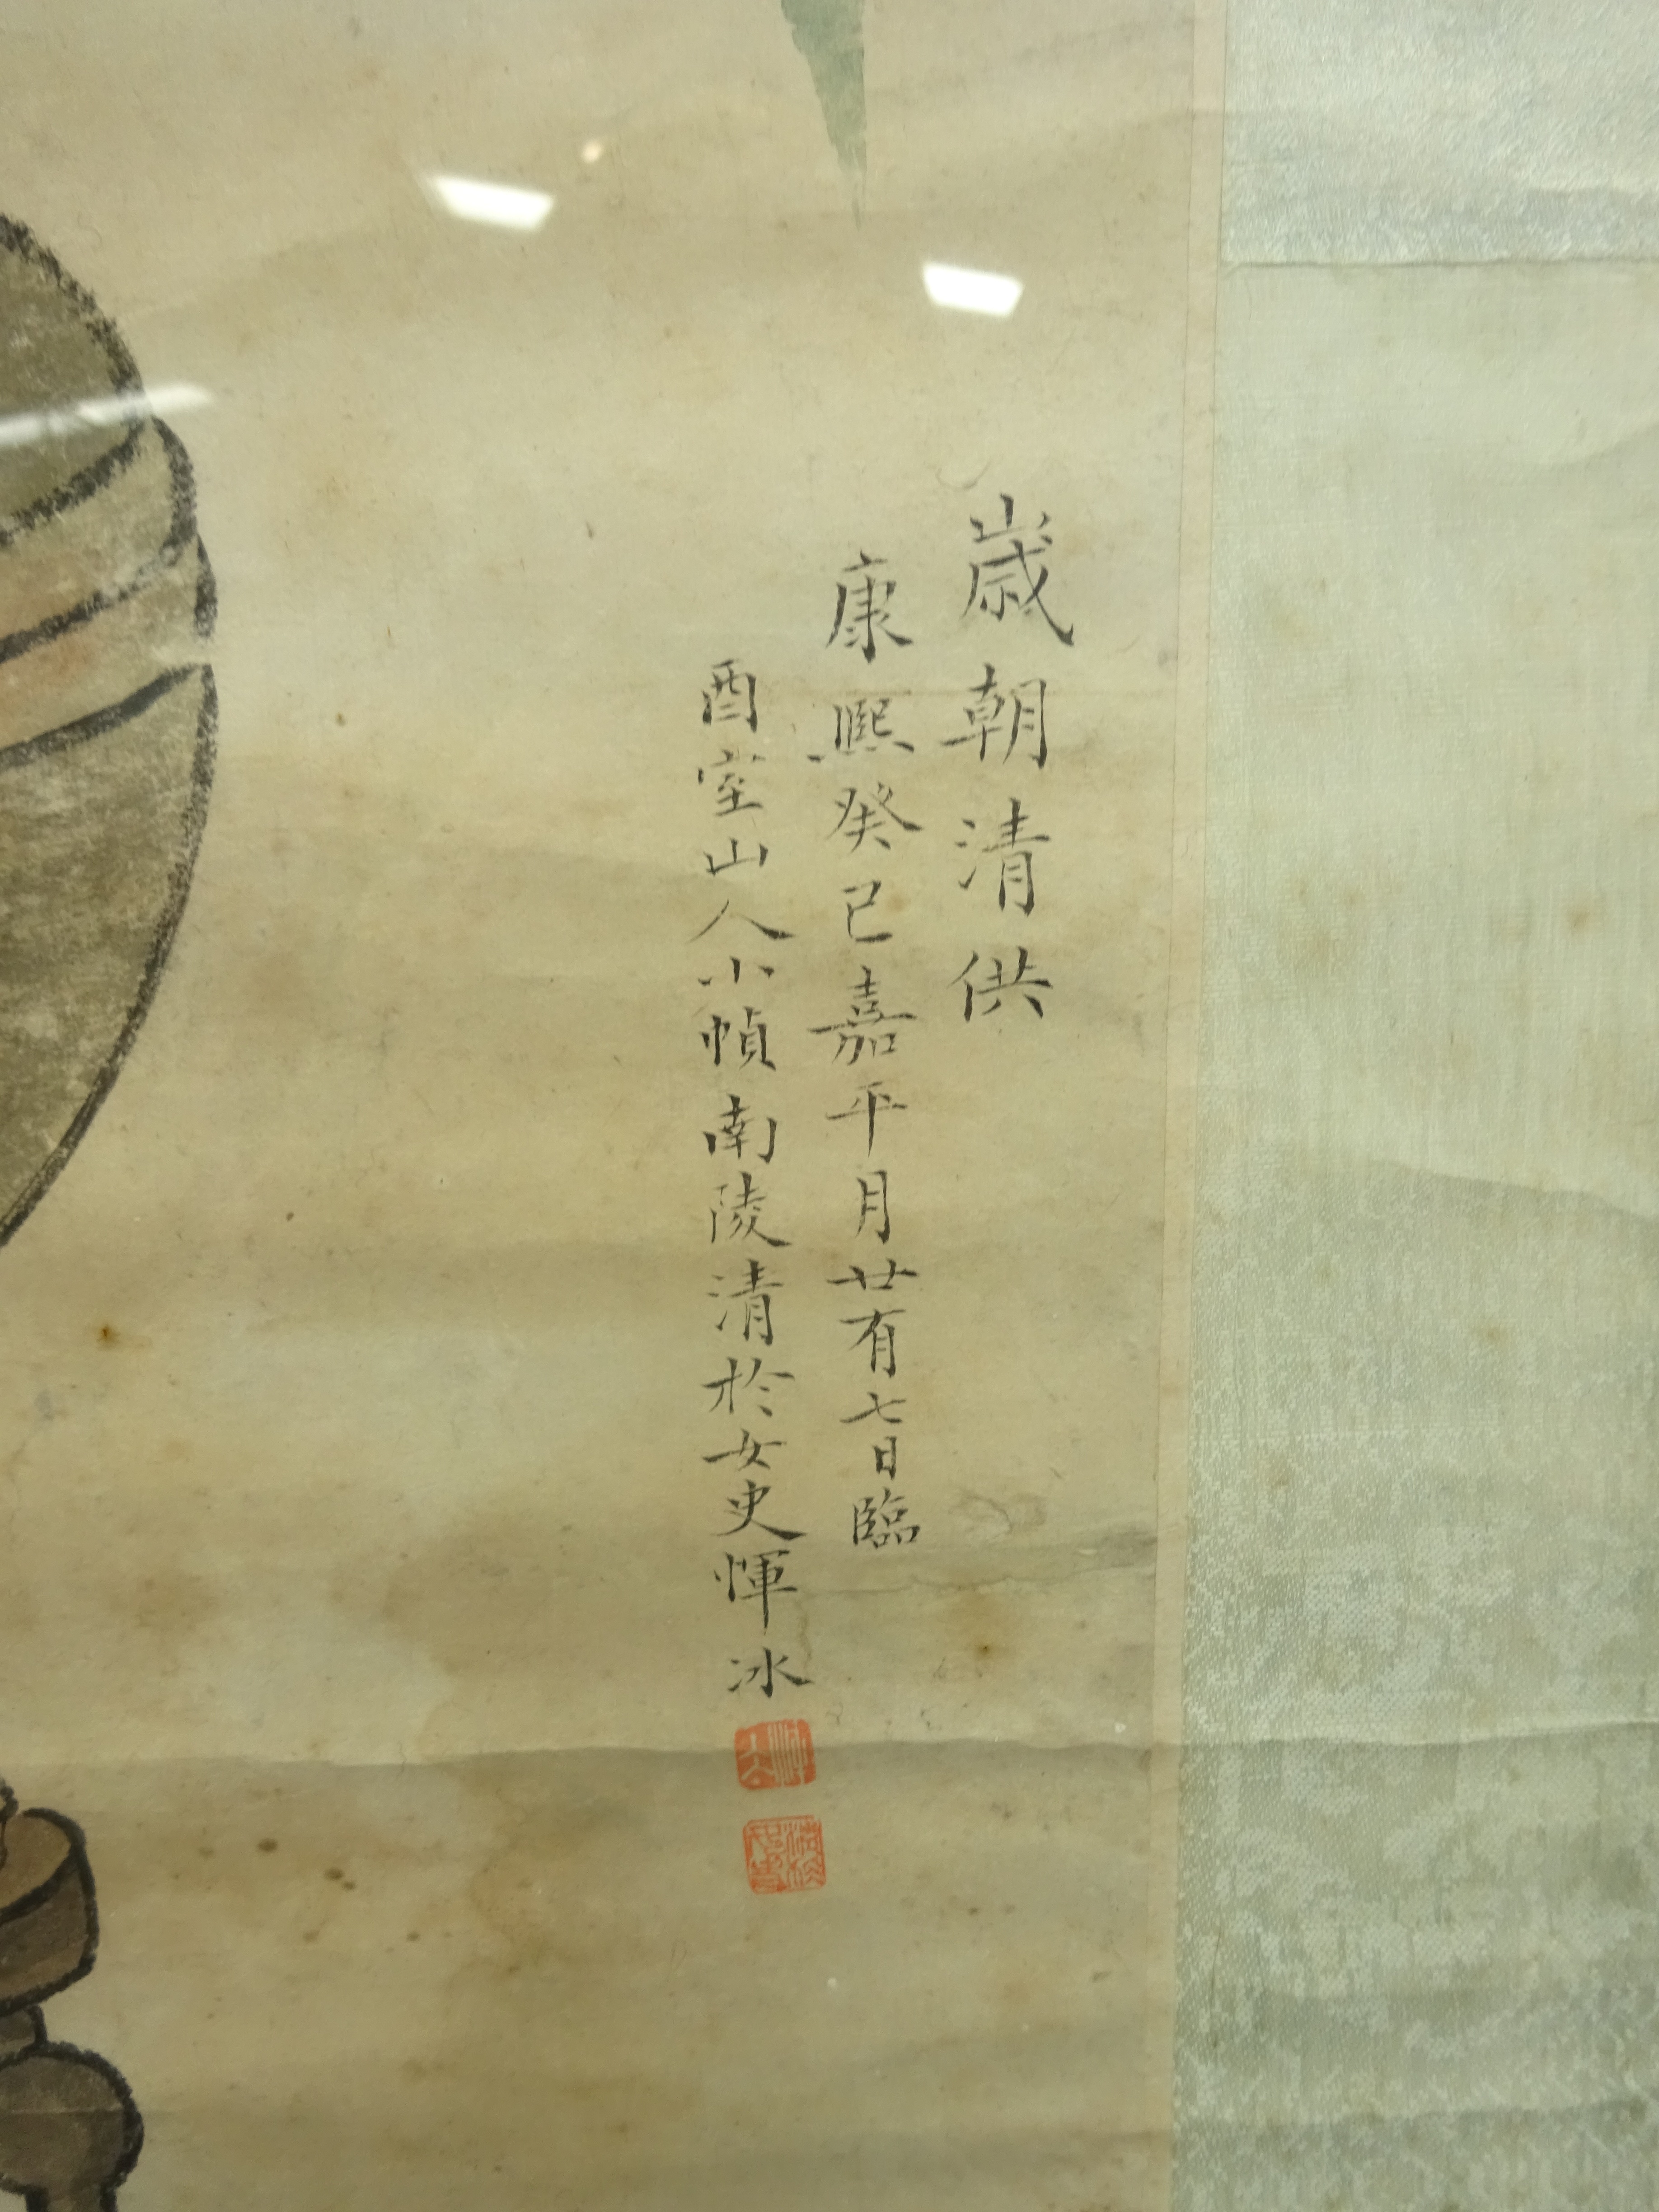 歲朝清供
康熙癸巳嘉平月廿有七日臨
周堂山人小幀南陵清於女史惲冰